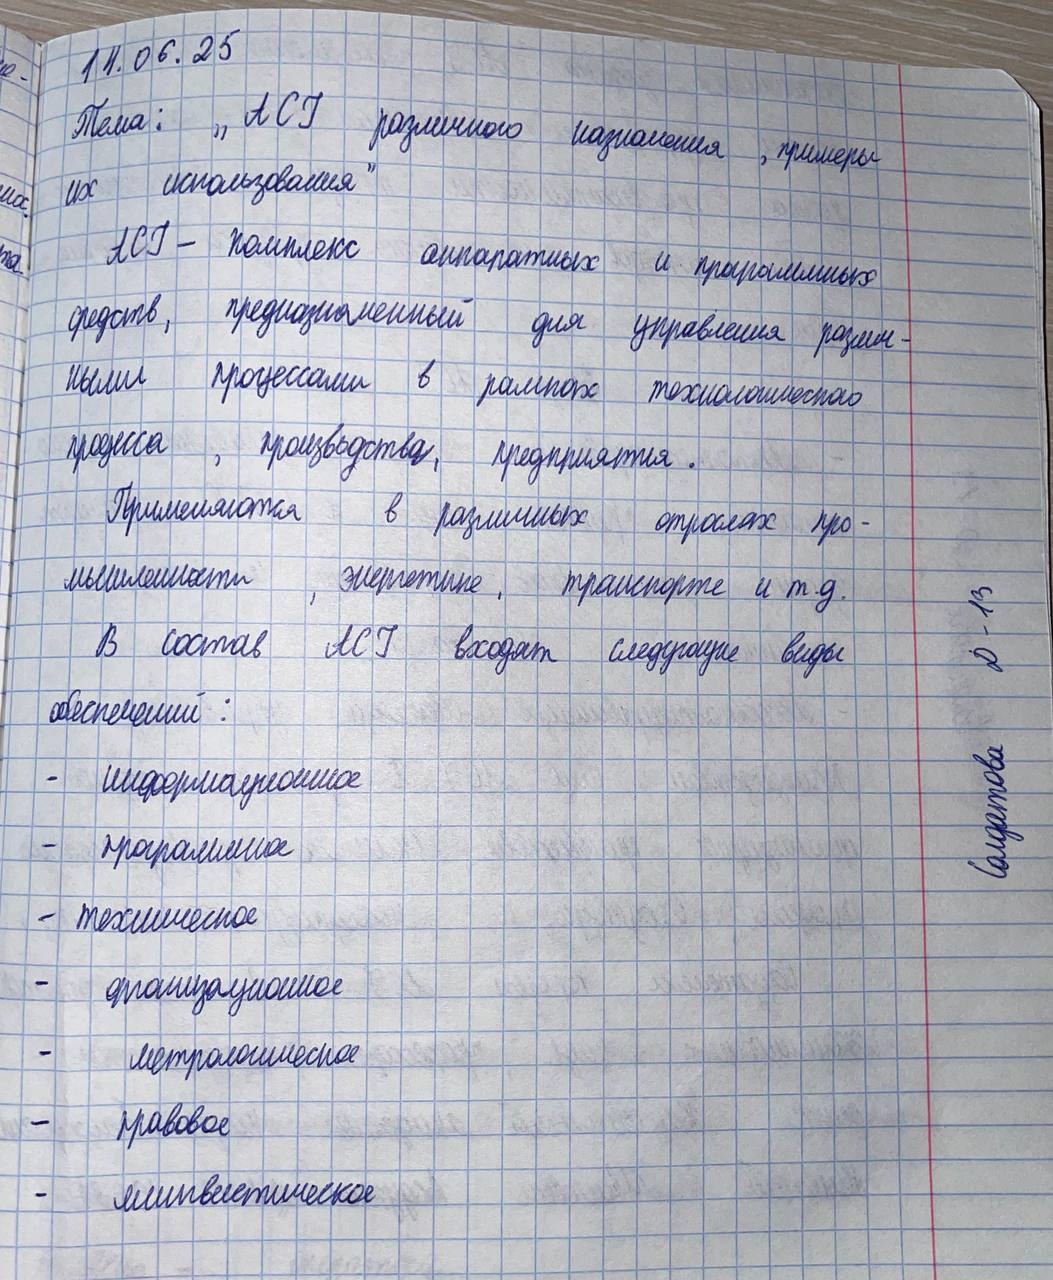 14.06.25
Тема: „АСУ различного назначения, примеры
их использования"
АСУ – комплекс аппаратных и программных
средств, предназначенный для управления различ-
ными процессами в рамках технологического
процесса, производства, предприятия.
Применяются в различных отраслях про-
мышленности, энергетике, транспорте и т.д.
В состав АСУ входят следующие виды
обеспечений:
- информационное
- программное
- техническое
- организационное
- метрологическое
- правовое
- лингвистическое
Солдатова Д-13